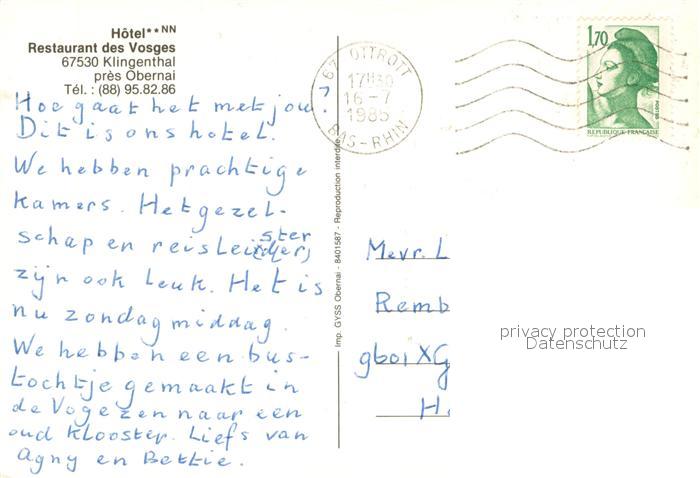 Hôtel** NN
Restaurant des Vosges
67530 Klingenthal
près Obernai
Tél. : (88) 95.82.86
Hoe gaat het met jou?
Dit is ons hotel.
We hebben prachtige
kamers. Het gezel-
schap en reisleidster,
zijn ook leuk. Het is
nu zondagmiddag.
We hebben een bus-
tochtje gemaakt in
de Vogezen naar een
oud klooster. Liefs van
Agny en Bettie.
Imp. GYSS Obernai - 8401587 - Reproduction interdite
67 OTTROTT
17H30
16-7
1985
BAS-RHIN
1,70
REPUBLIQUE FRANÇAISE
Mevr. L
Remb
9601 XG
H.
privacy protection
Datenschutz